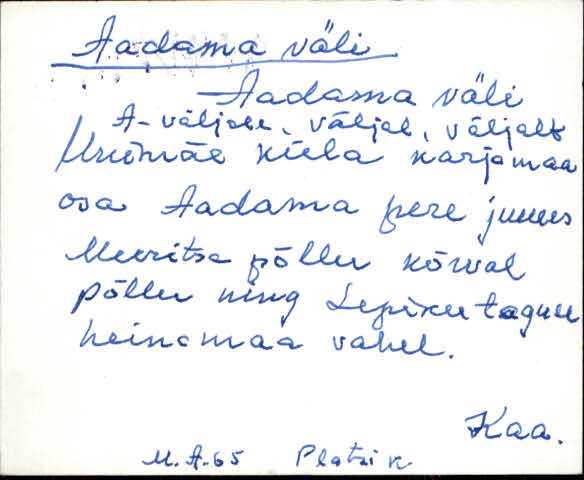 Aadama väli
Aadama väli
A- väljale, väljal, väljalt
küla karjamaa
osa Aadama pere juures
põllu kõrval
põllu ning Lepiku taguse
heinamaa vahel.
Kaa.
M. A. 65 Platsik